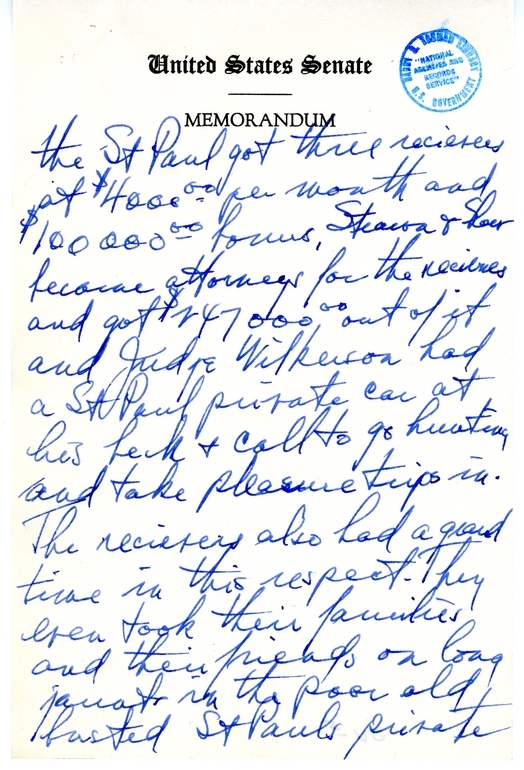 United States Senate
MEMORANDUM
HARRY S. TRUMAN LIBRARY
"NATIONAL
ARCHIVES AND
RECORDS
SERVICE"
U.S. GOVERNMENT
the St Paul got three recievers
at $4000 00 per month and
$100 000 00 bonus, &
became attorneys for the recievers
and got $247 000 00 out of it
and Judge Wilkerson had
a St Paul private car at
his beck & call to go hunting
and take pleasure trips in.
The recievers also had a grand
time in this respect. They
even took their families
and their friends on long
in the poor old
busted St Pauls private